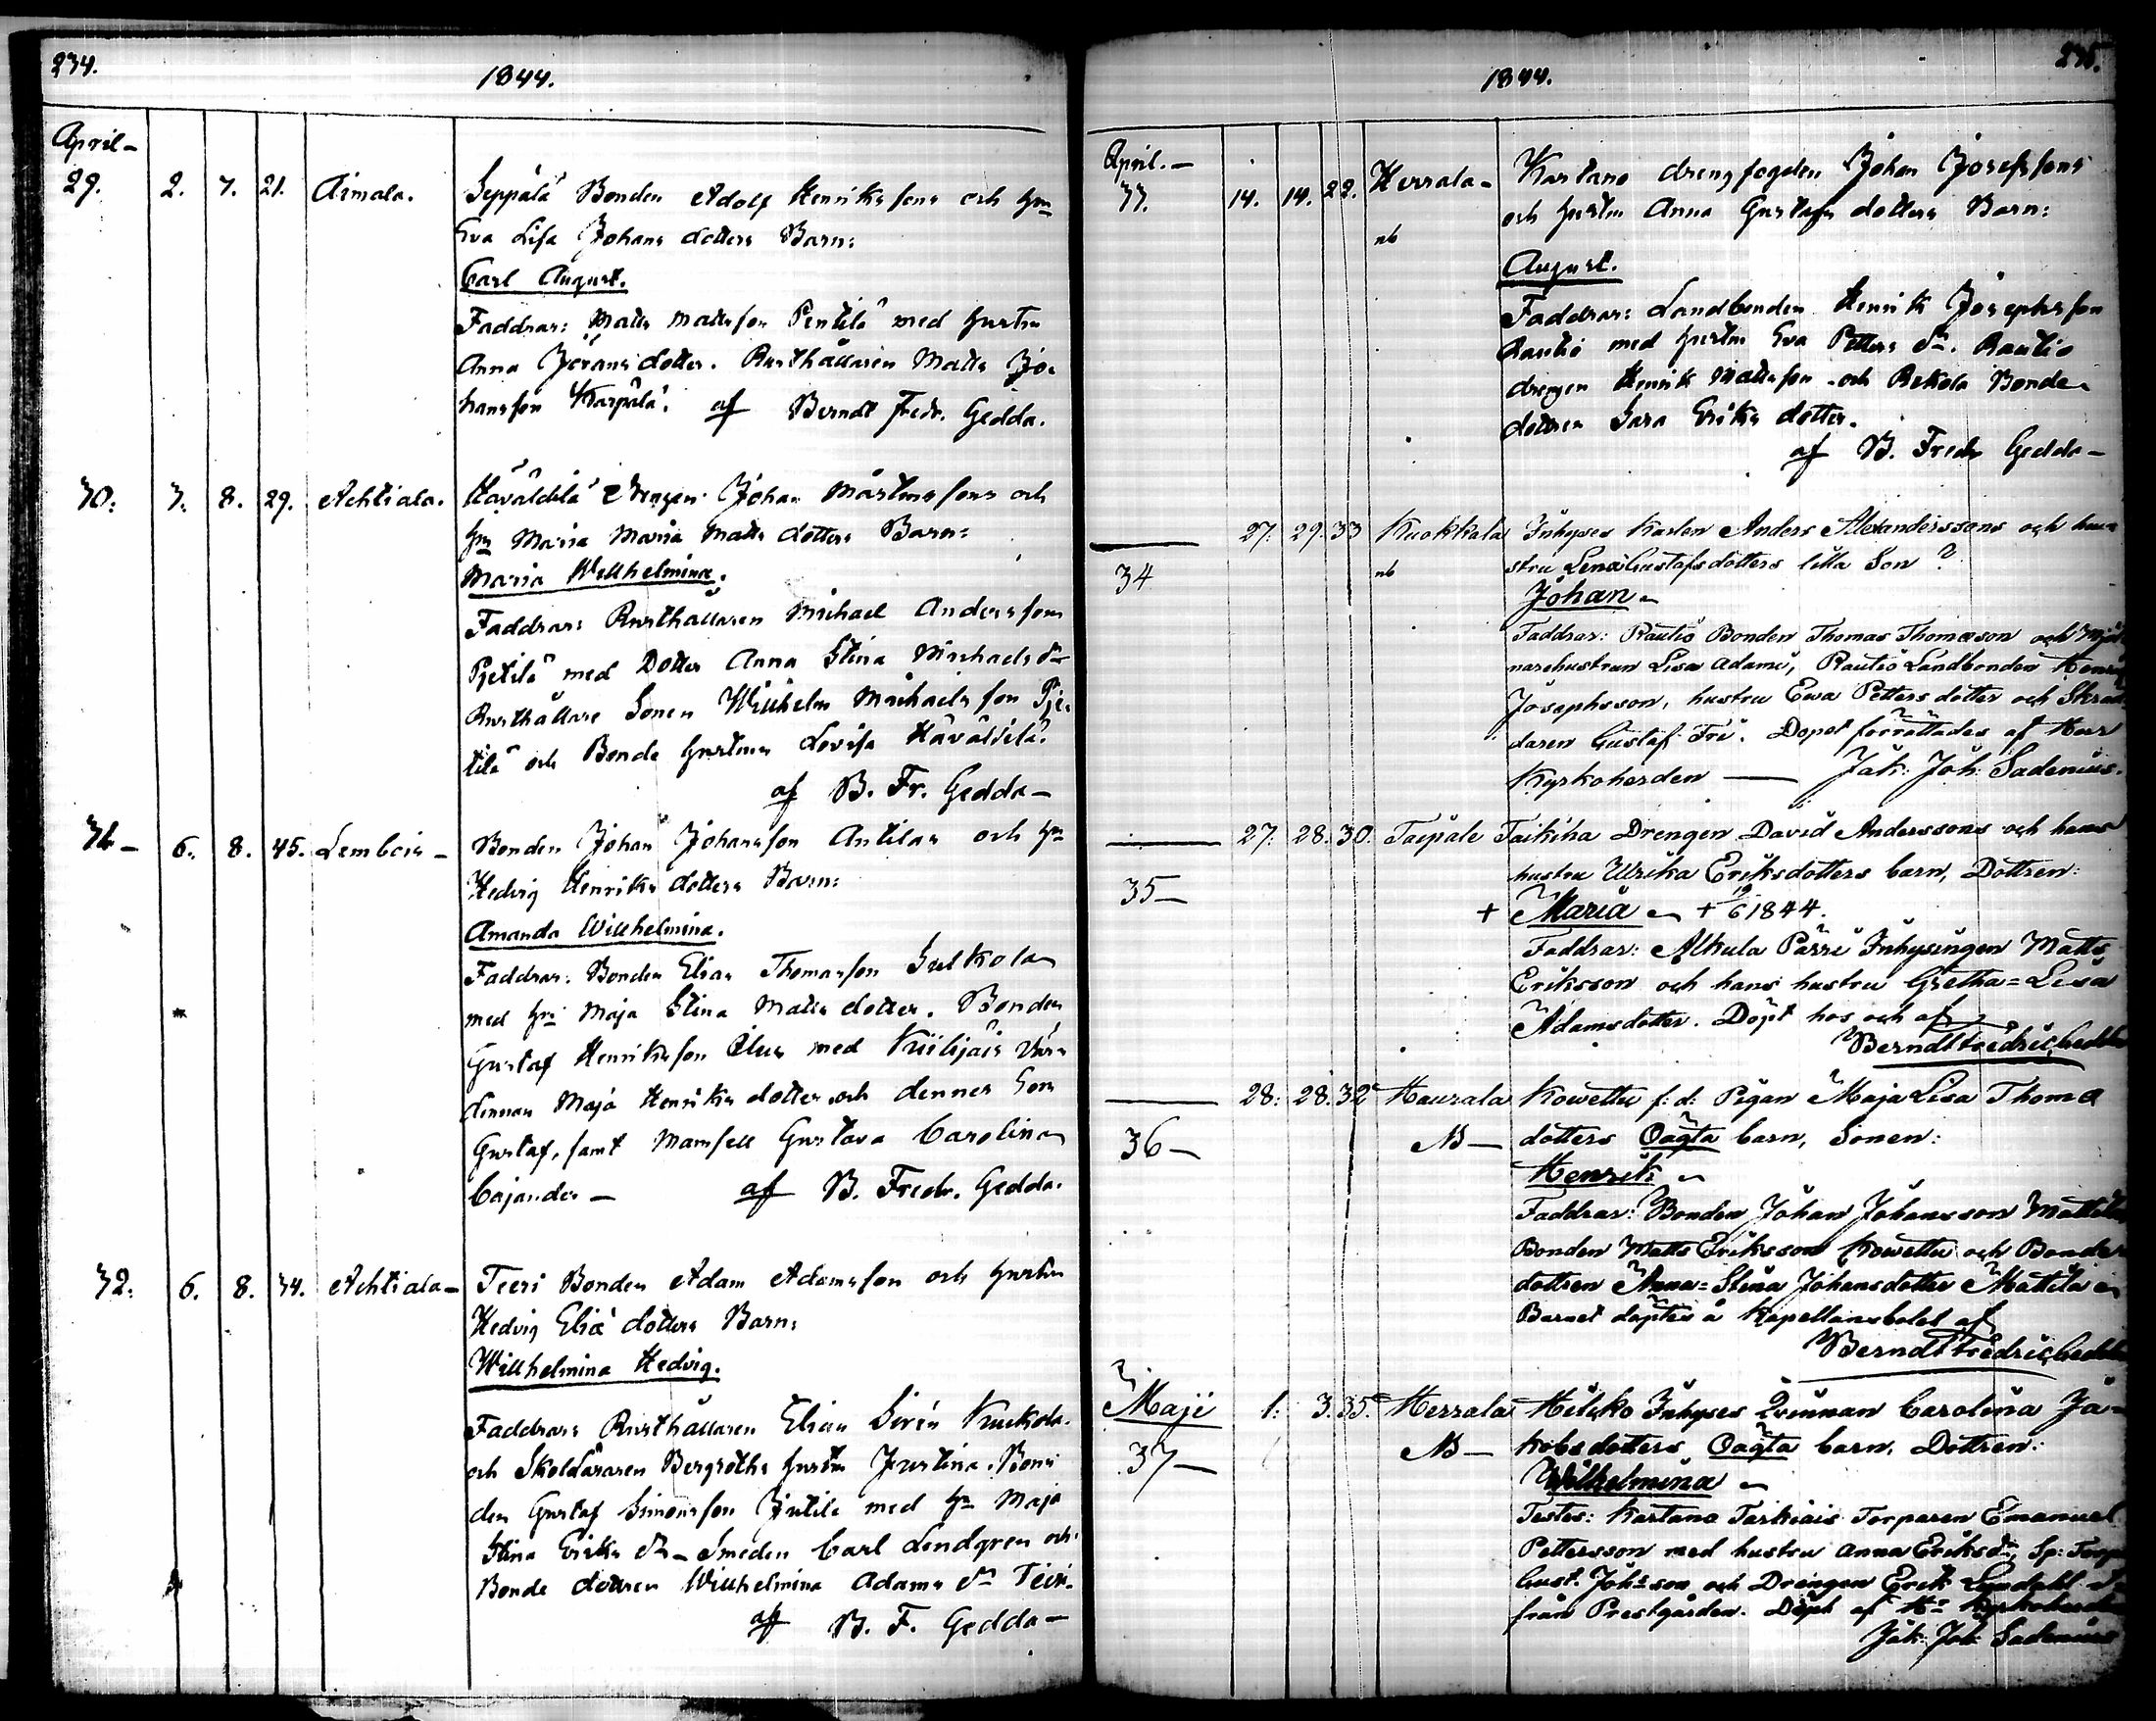 234.
1844.
April-
29. 2. 7. 21. Aimala. Seppälä Bonden Adolf Henriksons och hn
Eva Lisa Johans dotters Barn:
Carl August.
Faddrar: Matts Mattsson Pentilä med hustrn
Anna Jörans dotter. Rusthållaren Matts Jo-
hansson Karpälä. af Berndt Fredr. Gedda.
30. 3. 8. 29. Achtiala. Drengen Johan Mårtenssons och
hn Maria Maria Matts dotters Barn:
Maria Willhelmina.
Faddrar: Rusthållaren Michael Andersson
Pjetilä med Dotter Anna Stina Michaels dr
Rusthållare Sonen Willhelm Michaelsson Pje-
tilä och Bonde hustrun Lovisa
af B. Fr. Gedda-
31- 6. 8. 45. Lembois- Bonden Johan Johansson Antilas och hn
Hedvig Henriks dotters Barn:
Amanda Willhelmina.
Faddrar: Bonden Elias Thomasson
med hn Maja Stina Matts dotter. Bonden
Gustaf Henriksson med
Maja Henriks dotter och dennes Son
Gustaf, samt Mamsell Gustava Carolina
Cajander- af B. Fredr. Gedda.
32. 6. 8. 34. Achtiala- Teeri Bonden Adam Adamsson och hustrun
Hedvig Eliæ dotters Barn:
Willhelmina Hedvig.
Faddrar: Rusthållaren Elias Sirén Kuckola.
och Skolläraren Bergroths hustru Justina. Bon-
den Gustaf Simonsson Jutila med hn Maja
Stina Eriks dr- Smeden Carl Lindgren och
Bonde dottren Willhelmina Adams dr Teeri.
af B. F. Gedda-
235.
1844.
April.-
33. 14. 14. 22. Herrala- Kartano drengfogden Johan Josefssons
och hustrun Anna Gustafs dotters Barn:
nb
August.
Faddrar: Landbonden Henrik Josephsson
Rautio med hustrun Eva Petters dr. Rautio
drengen Henrik Mattsson och Rekola Bonde
dottren Sara Eriks dotter.
af B. Fredr Gedda-
27. 29. 33 Kuokkala Inhyses Karlen Anders Alexanderssons och hu-
34 nb stru Lena Gustafsdotters lilla Son ?
Johan-
Faddrar: Rautio Bonden Thomas Thomasson och Mjöl-
narehustrun Lisa Adams, Rautio Landbonden Henrik
Josephsson, hustru Ewa Petters dotter och Skräd-
daren Gustaf Fri. Dopet förrättades af Herr
Kyrkoherden - Jak: Joh: Sadenius.
27. 28. 30. Taipale Taikiha Drengen David Anderssons och hans
35- hustru Ulrika Eriksdotters barn, Dottren:
+ Maria - + 19/6 1844.
Faddrar: Alkula Parri Inhysingen Matts
Eriksson och hans hustru Gretha=Lisa
Adamsdotter. Döpt hos och af
Berndt Fredric Gedda
28. 28. 32 Haurala Kowettu f: d: Pigan Maja Lisa Thomæ
36- NB- dotters Oägta barn, Sonen:
Henrik -
Faddrar: Bonden Johan Johansson Mattila
Bonden Matts Eriksson Kowettu och Bonde
dottren Anna=Stina Johansdotter Mattila -
Barnet döptes å Kapellansbolet af
Berndt Fredric Gedda
Maji 1. 3. 35. Herrala Inhyses Qvinnan Carolina Ja-
37- NB- kobsdotters Oägta barn, Dottren:
Wilhelmina -
Testes: Kartano Torparen Emanuel
Pettersson med hustru Anna Eriksdr, Sp:
Gust. Johsson och Drengen Erik
från Prestgården. Döpt af Hr Kyrkoherden
Jak: Joh: Sadenius